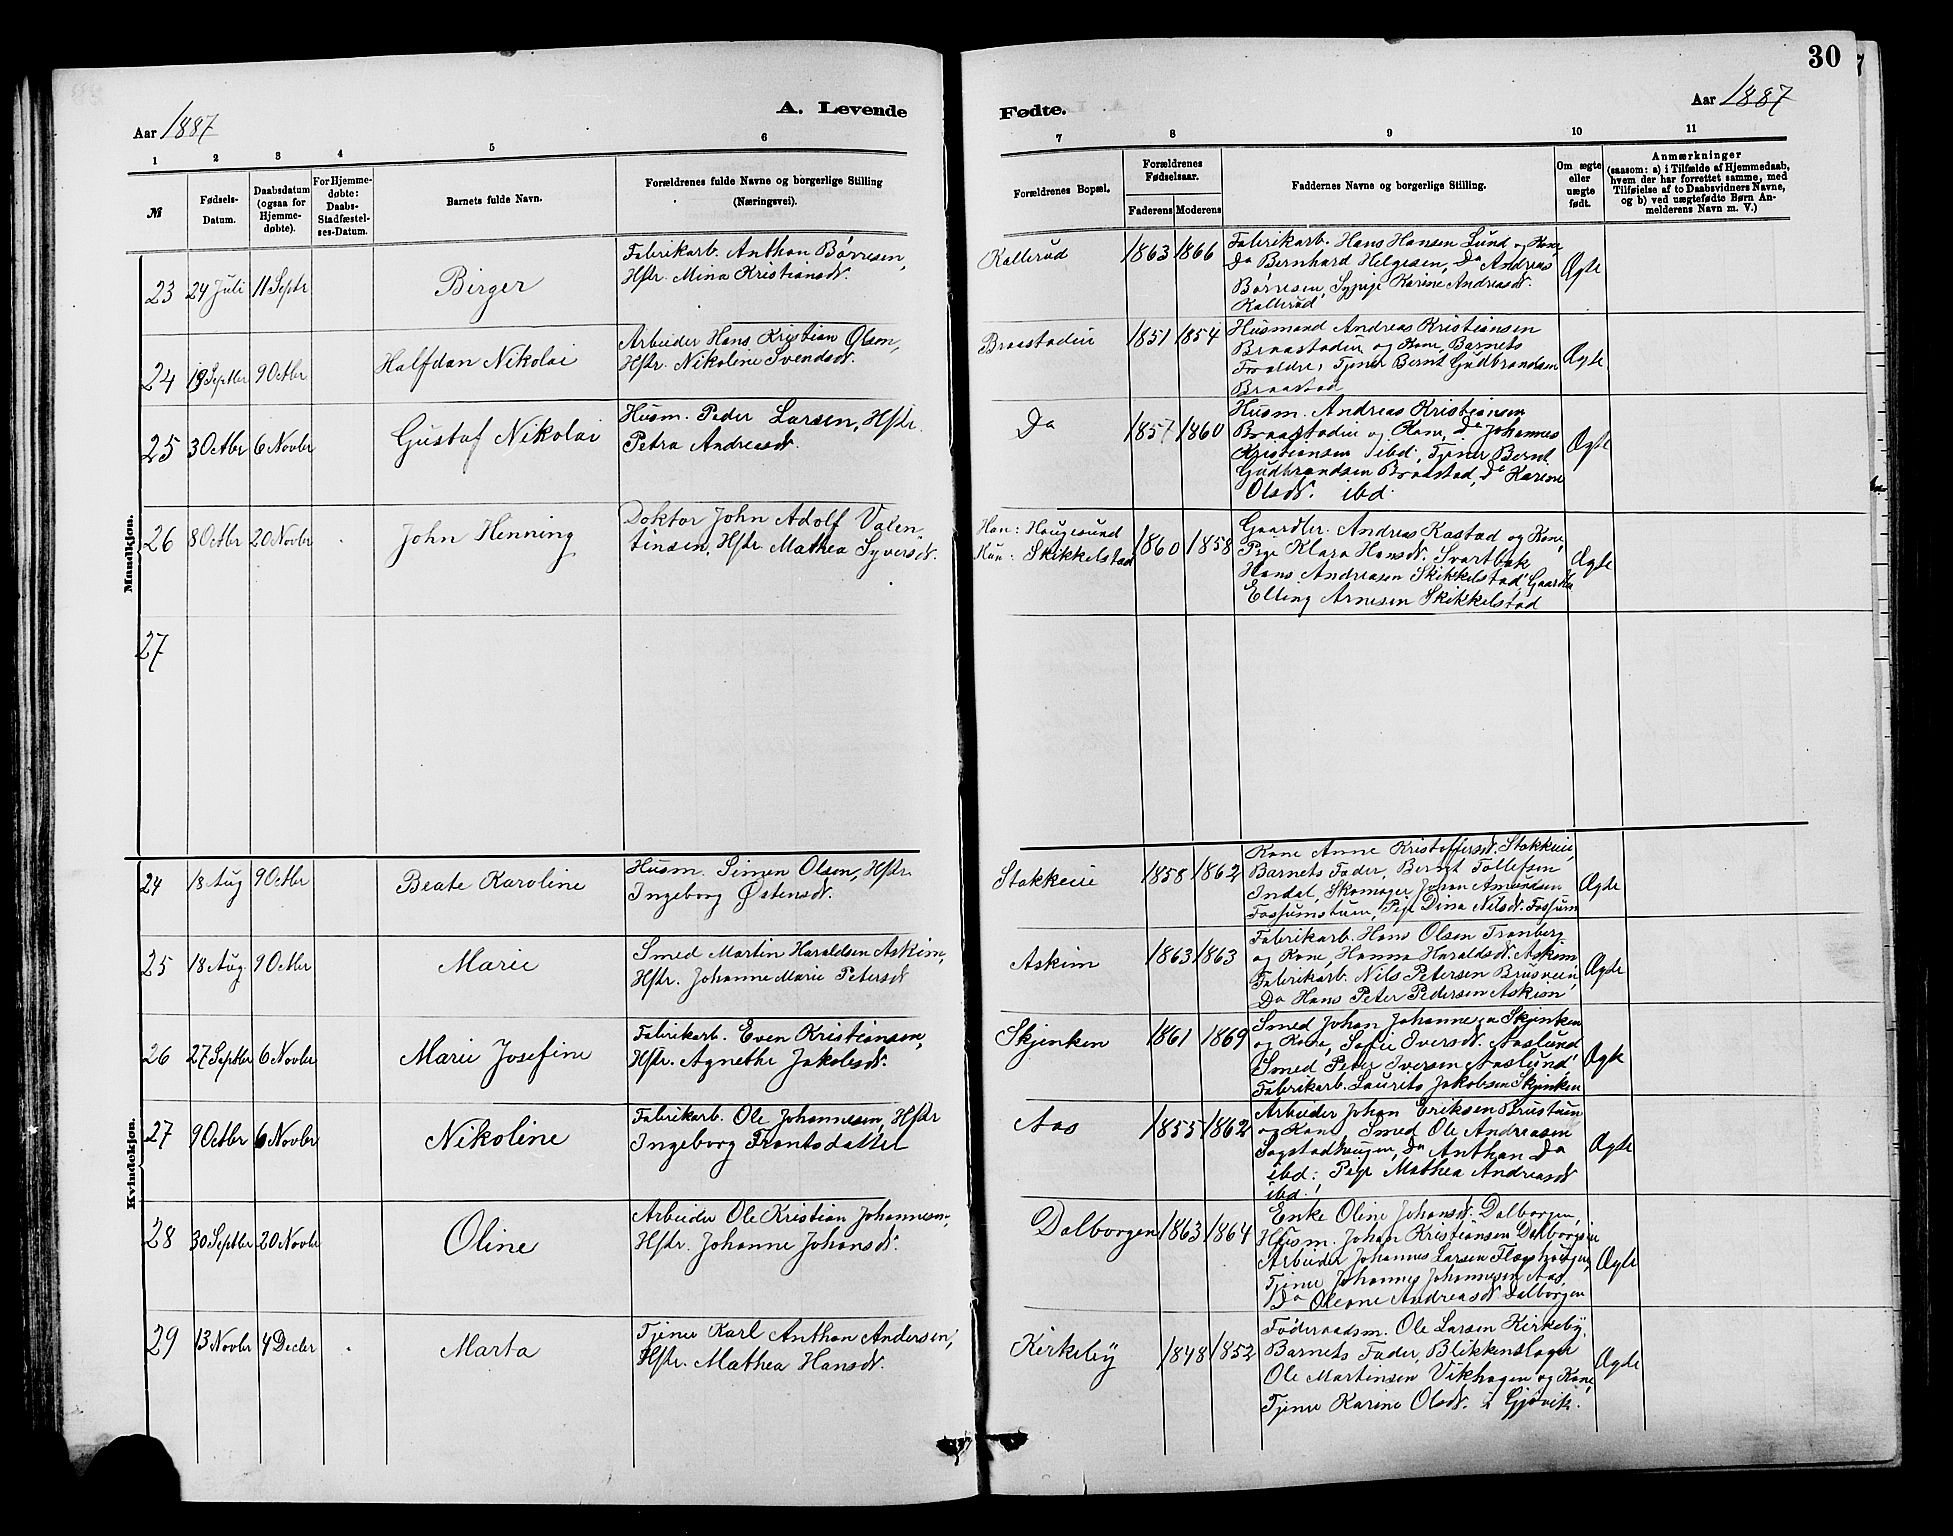 30
Aar 1887
A. Levende
Fødte.
Aar 1887
1 2 3 4 5 6 7 8 9 10 11
№
Fødsels-
Datum.
Daabsdatum
(ogsaa for
Hjemme-
døbte).
For Hjemme-
døbte:
Daabs-
Stadfæstel-
ses-Datum.
Barnets fulde Navn.
Forældrenes fulde Navne og borgerlige Stilling
(Næringsvei).
Forældrenes Bopæl.
Forældrenes
Fødselsaar.
Faderens Moderens
Faddernes Navne og borgerlige Stilling.
Om ægte
eller
uægte
født.
Anmærkninger
(saasom: a) i Tilfælde af Hjemmedaab,
hvem der har forrettet samme, med
Tilføielse af to Daabsvidners Navne,
og b) ved uægtefødte Børn An-
melderens Navn m. V.)
Mandkjøn.
23 24 Juli 11 Septr Birger
Fabrikarb. Anthon Børresen,
Hstr. Mina Kristiansd.
Kallerud 1863 1866
Fabrikarb. Hans Hansen Lund og Kone,
Do Bernhard Helgesen, Do Andreas
Børresen, Sypige Karine Andreasd.
Kallerud
Ægte
24 19 Septbr 9 Octbr Halfdan Nikolai
Arbeider Hans Kristian Olsen,
Hstr. Nikoline Svendsd.
Braastadeie 1851 1854
Husmand Andreas Kristiansen
Braastadeie og Kone, Barnets
Forældre, Tjener Bernt Gudbrandsen
Braastad
Ægte
25 3 Octbr 6 Novbr Gustaf Nikolai
Husm. Peder Larsen, Hstr.
Petra Andreasd.
Do 1857 1860
Husm. Andreas Kristiansen
Braastadeie og Kone, Do Johannes
Kristiansen ibd., Tjener Bernt
Gudbrandsen Braastad, Do Karine
Olsd. ibd.
Ægte
26 8 Octbr 20 Novbr John Henning
Doktor John Adolf Valen-
tinsen, Hstr Mathea Syversd.
Han: Haugesund
Hun: Skikkelstad
1860 1858
Gaardbr. Andreas Kastad og Kone,
Pige Klara Hansd. Svartbæk
Hans Andreasen Skikkelstad, Gaardbr
Elling Arnesen Skikkelstad
Ægte
27
Kvindekjøn.
24 18 Aug 9 Octbr Beate Karoline
Husm. Simen Olsen, Hstr.
Ingeborg Østensd.
Stokkeeie 1858 1862
Kone Anne Kristoffersd. Stokkeeie,
Barnets Fader, Berngt Tollefsen
Indal, Skomager Johan Amundsen
Fossumstuen, Pige Dina Nilsd. Fossum
Ægte
25 18 Aug. 9 Octbr Marie
Smed Martin Haraldsen Askim,
Hstr. Johanne Marie Petersd.
Askim 1863 1863
Fabrikarb. Hans Olsen Tranberg
og Kone, Hanna Haraldsd. Askim
Fabrikarb. Nils Petersen Brusveen,
Do Hans Peter Pedersen Askim
Ægte
26 27 Septbr 6 Novbr Marie Josefine
Fabrikarb. Even Kristiansen,
Hstr. Agnethe Jakobsd.
Skjenken 1861 1869
Smed Johan Johannesen Skjenken
og Kone, Sofie Iversd. Aaslund
Smed Peter Iversen Aaslund,
Fabrikarb. Laurets Jakobsen Skjenken
Ægte
27 9 Octbr 6 Novbr Nikoline
Fabrikarb. Ole Johannesen, Hstr
Ingeborg Frantsdatter
Aas 1855 1862
Arbeider Johan Eriksen
og Kone, Smed Ole Andreasen
Sogstadhaugen, Do Anthon Do
ibd., Pige Mathea Andreasd
ibd.
Ægte
28 30 Septbr 20 Novbr Oline
Arbeider Ole Kristian Johannesen,
Hstr. Johanne Johansd.
Dalborgen 1863 1864
Enke Oline Johansd. Dalborgen,
Husm. Johan Kristiansen Dalborgeie
Arbeider Johannes Larsen
Tjener Johannes Johannesen Aas,
Do Oleane Andreasd. Dalborgen
Ægte
29 13 Novbr 4 Decbr Marta
Tjener Karl Anthon Andersen,
Hstr. Mathea Hansd.
Kirkeby 1848 1852
Føderaadsm. Ole Larsen Kirkeby,
Barnets Fader, Blikkenslager
Ole Martinsen Vikhagen og Kone,
Tjener Karine Olsd. i Gjøvik.
Ægte